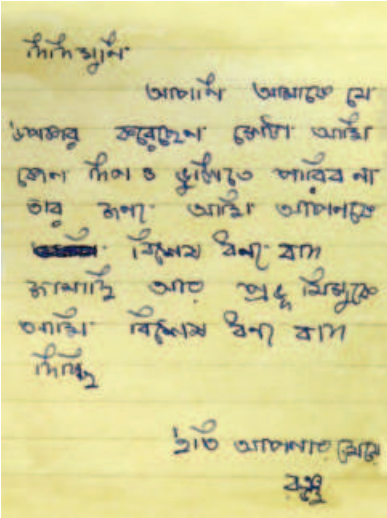 দিদিমুনি
আপনি আমাকে যে
উপকার করেছেন সেটা আমি
কোন দিন ও ভুলিতে পারিব না
তার জন্য আমি আপনাকে
বিশেষ ধন্য বাদ
জানাচ্ছি আর প্রভু যিশুকে
আমি বিশেষ ধন্য বাদ
দিচ্ছি
ইতি আপনার মেয়ে